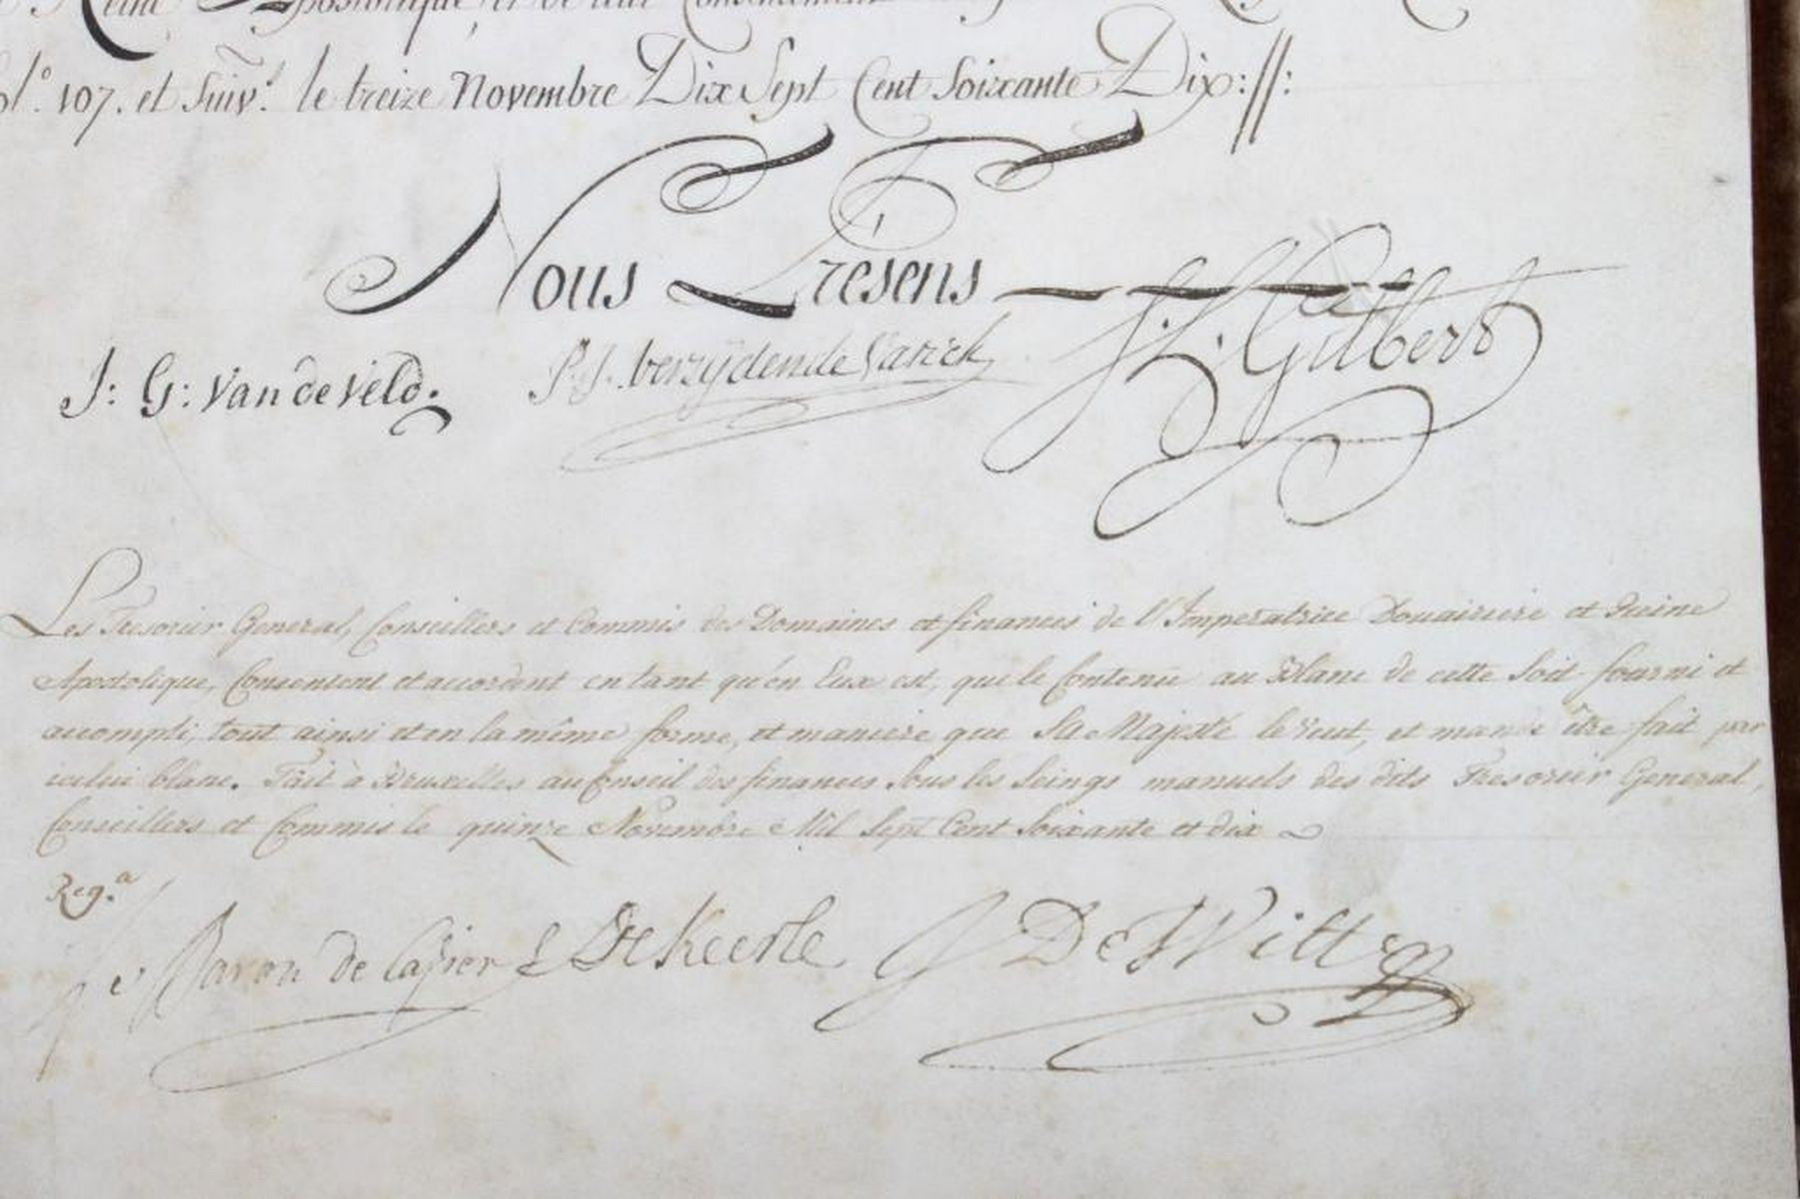 Reine Apostolique, et de leur Consentement
fol.° 107. et Suiv.t le treize Novembre Dix Sept Cent Soixante Dix://:
Nous Présens
J: G: Van de Veld. P. J. verzÿdende Varick J. L. Gilbert
Les Tresorier General, Conseillers et Commis des Domaines et finances de l'Imperatrice Douairiere et Reine
Apostolique, Consentent et accordent en tant qu'en Eux est, que le Contenu au Blanc de cette Soit fourni et
accompli, tout ainsi et en la même forme, et maniere que Sa Majesté le veut, et mande être fait par
icelui blanc. Fait à Bruxelles au Conseil des finances Sous les Seings manuels des dits Tresorier General,
Conseillers et Commis le quinze Novembre Mil Sept Cent Soixante et dix
Reg.a
Le Baron de Cazier DeKeerle J DeWitt